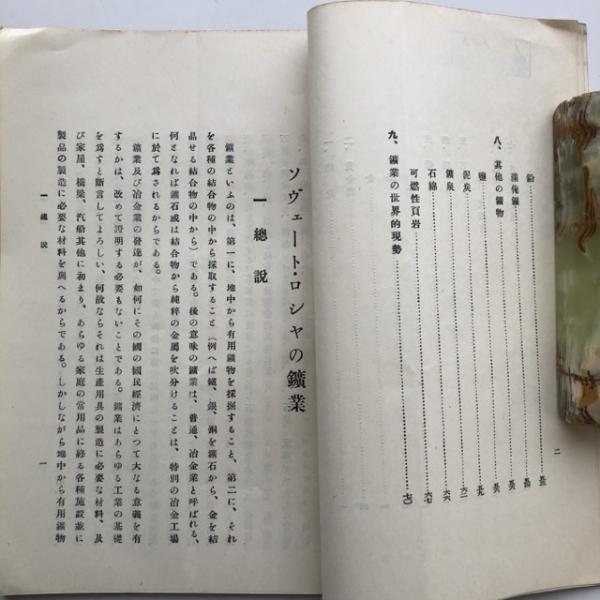 鉛
滿俺鑛
八、其他の鑛物
鹽
泥炭
鑛泉
石綿
可燃性頁岩
九、鑛業の世界的現勢
二
ソヴェート・ロシヤの鑛業
一 總說
鑛業といふのは、第一に、地中から有用鑛物を採掘すること、第二に、それ
を各種の結合物の中から採取すること（例へば鐵、銀、銅を鑛石から、金を結
晶せる結合物の中から）である。後の意味の鑛業は、普通、冶金業と呼ばれる、
何となれば鑛石或は結合物から純粹の金屬を吹分けることは、特別の冶金工場
に於て爲されるからである。
鑛業及び冶金業の發達が、如何にその國の國民經濟にとつて大なる意義を有
するかは、改めて證明する必要もないことである。鑛業はあらゆる工業の基礎
を爲すと斷言してよろしい、何故ならそれは生產用具の製造に必要な材料、及
び家屋、橋梁、汽船其他に初まり、あらゆる家庭の常用品に終る各種施設並に
製品の製造に必要な材料を與へるからである。しかしながら地中から有用鑛物
一 總說
一